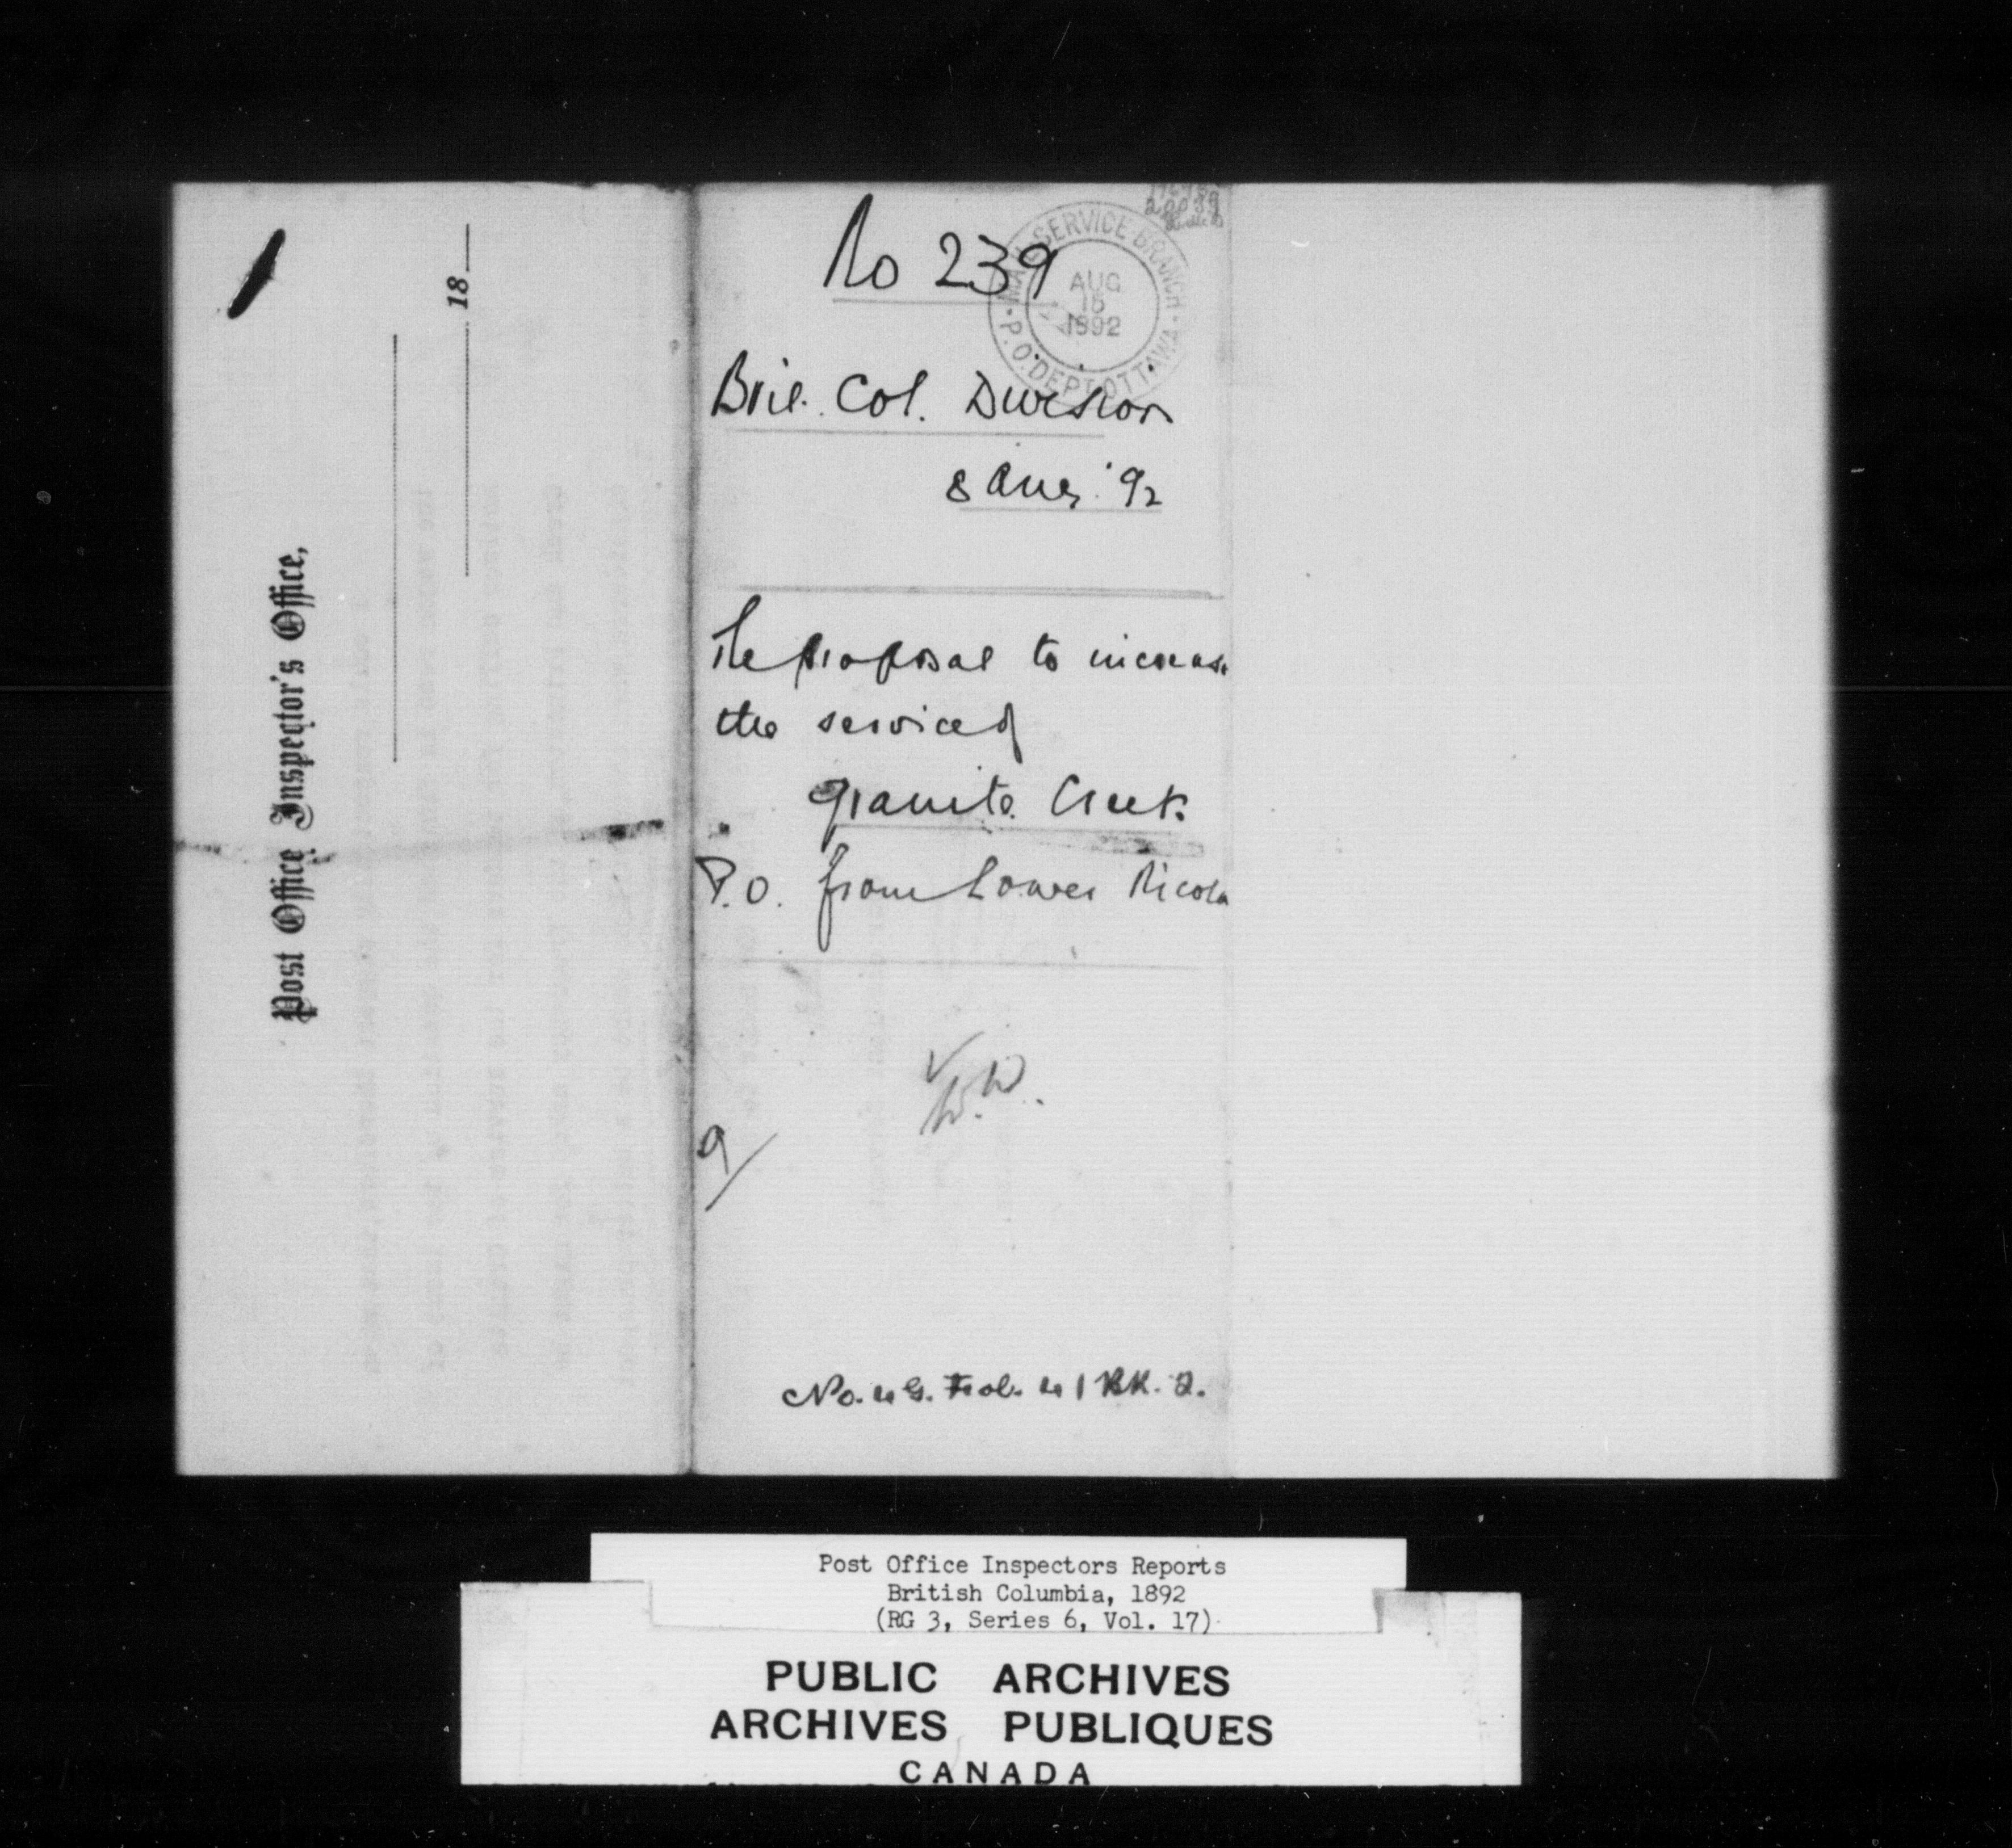 Post Office Inspector's Office,
18
No 239
MAIL SERVICE BRANCH
AUG
15
1892
P.O. DEPT OTTAWA
Brit. Col. Division
8 Aug. '92
Re proposal to increase
the service of
Granite Creek
P.O. from Lower Nicola
W.W.
9/
Post Office Inspectors Reports
British Columbia, 1892
(RG 3, Series 6, Vol. 17)
PUBLIC ARCHIVES
ARCHIVES PUBLIQUES
CANADA